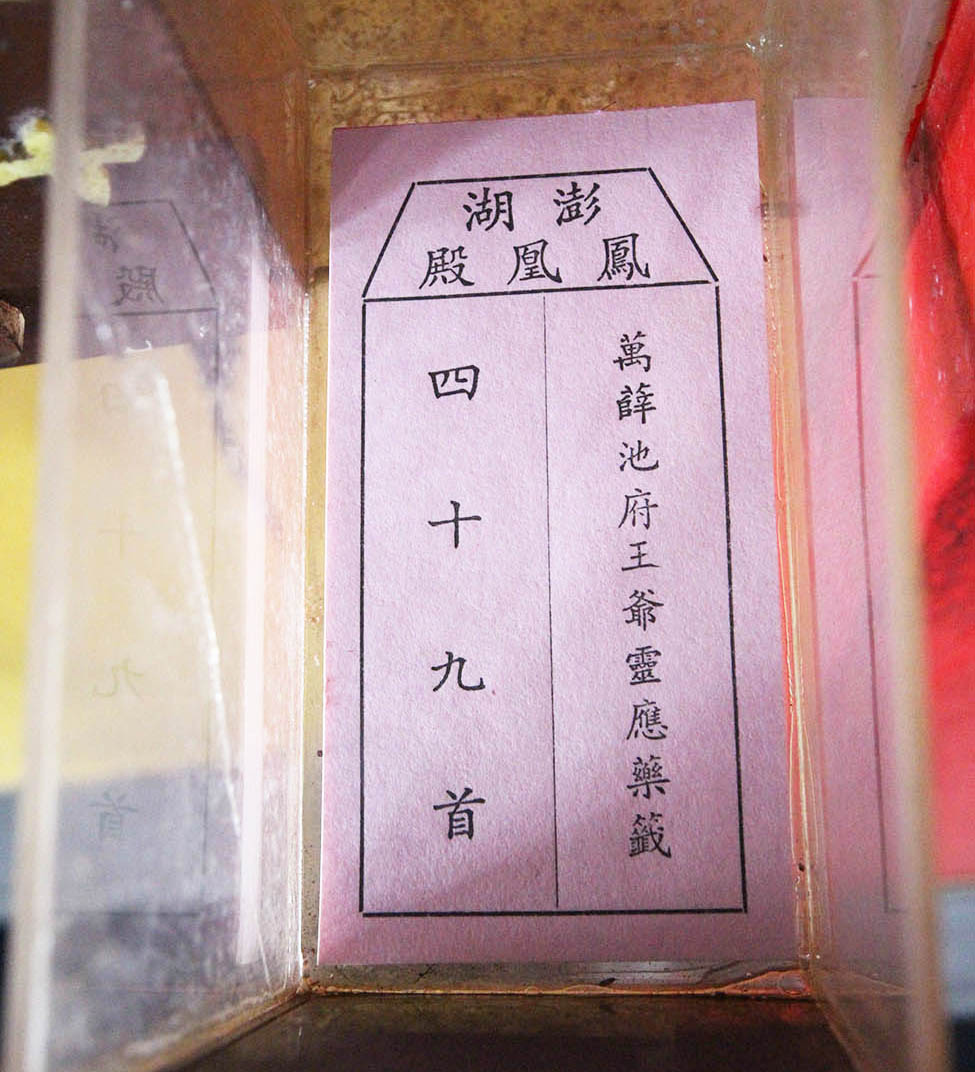 澎湖
鳳凰殿
萬薛池府王爺靈應藥籤
四十九首